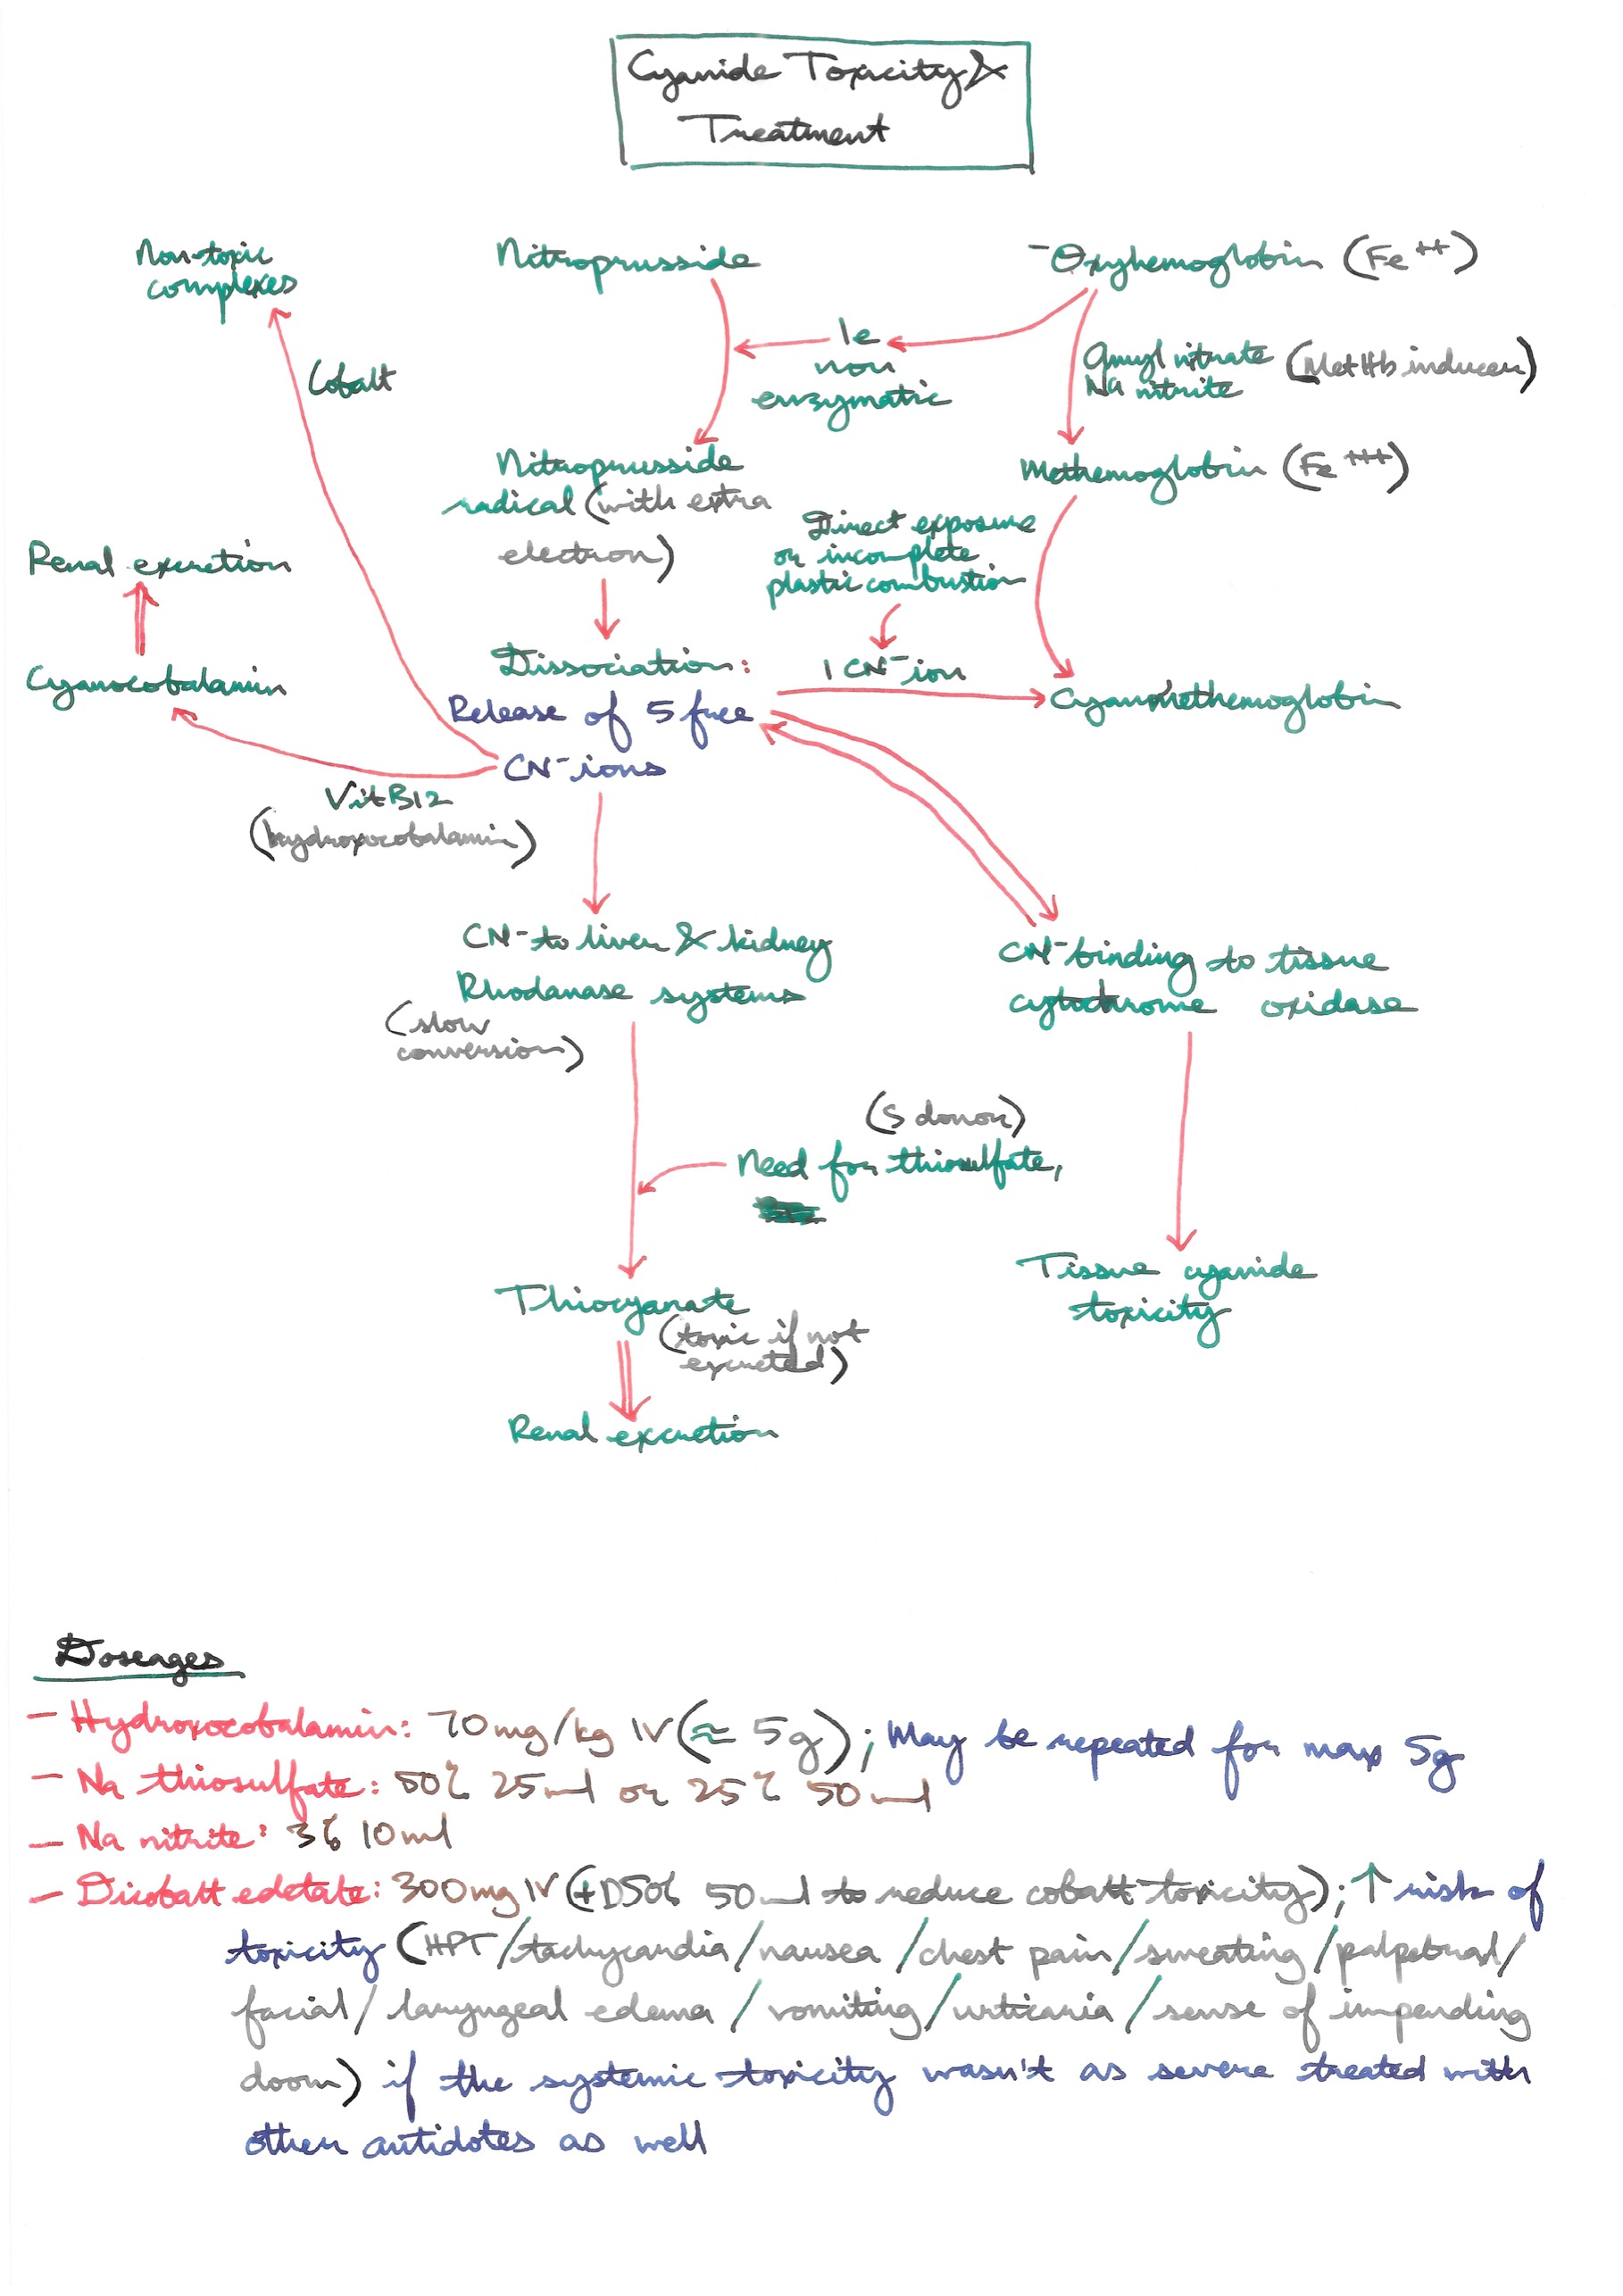 Cyanide Toxicity &
Treatment
Non-toxic
complexes
Nitroprusside
- Oxyhemoglobin (Fe++)
Cobalt
1e
non
enzymatic
Amyl nitrate
Na nitrite
(MetHb inducer)
Nitroprusside
radical (with extra
electron)
Methemoglobin (Fe+++)
Direct exposure
or incomplete
plastic combustion
Renal excretion
Cyanocobalamin
Dissociation:
Release of 5 free
CN- ions
1 CN- ion
Cyanmethemoglobin
Vit B12
(hydroxocobalamin)
CN- to liver & kidney
Rhodanase systems
(slow
conversion)
CN- binding to tissue
cytochrome oxidase
(S donor)
Need for thiosulfate,
Thiocyanate
(toxic if not
excreted)
Tissue cyanide
toxicity
Renal excretion
Doseages
- Hydroxocobalamin: 70mg/kg IV (≈ 5g); May be repeated for max 5g
- Na thiosulfate: 50% 25ml or 25% 50ml
- Na nitrite: 3% 10ml
- Dicobalt edetate: 300mg IV (+D50% 50ml to reduce cobalt toxicity); ↑ risk of
toxicity (HPT/tachycardia/nausea/chest pain/sweating/palpebral/
facial/laryngeal edema/vomiting/urticaria/sense of impending
doom) if the systemic toxicity wasn't as severe treated with
other antidotes as well